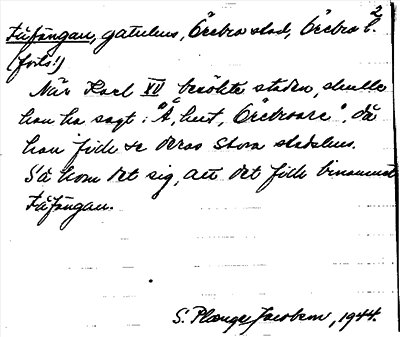 2
Fåfängan, gatuhus, Örebro stad, Örebro l.
(forts.)
När Karl XV besökte staden, skulle
han ha sagt: "Å, hut, Örebroare", då
han fick se deras stora stadshus.
Så kom det sig, att det fick binamnet
Fåfängan.
S. Plænge Jacobson, 1944.